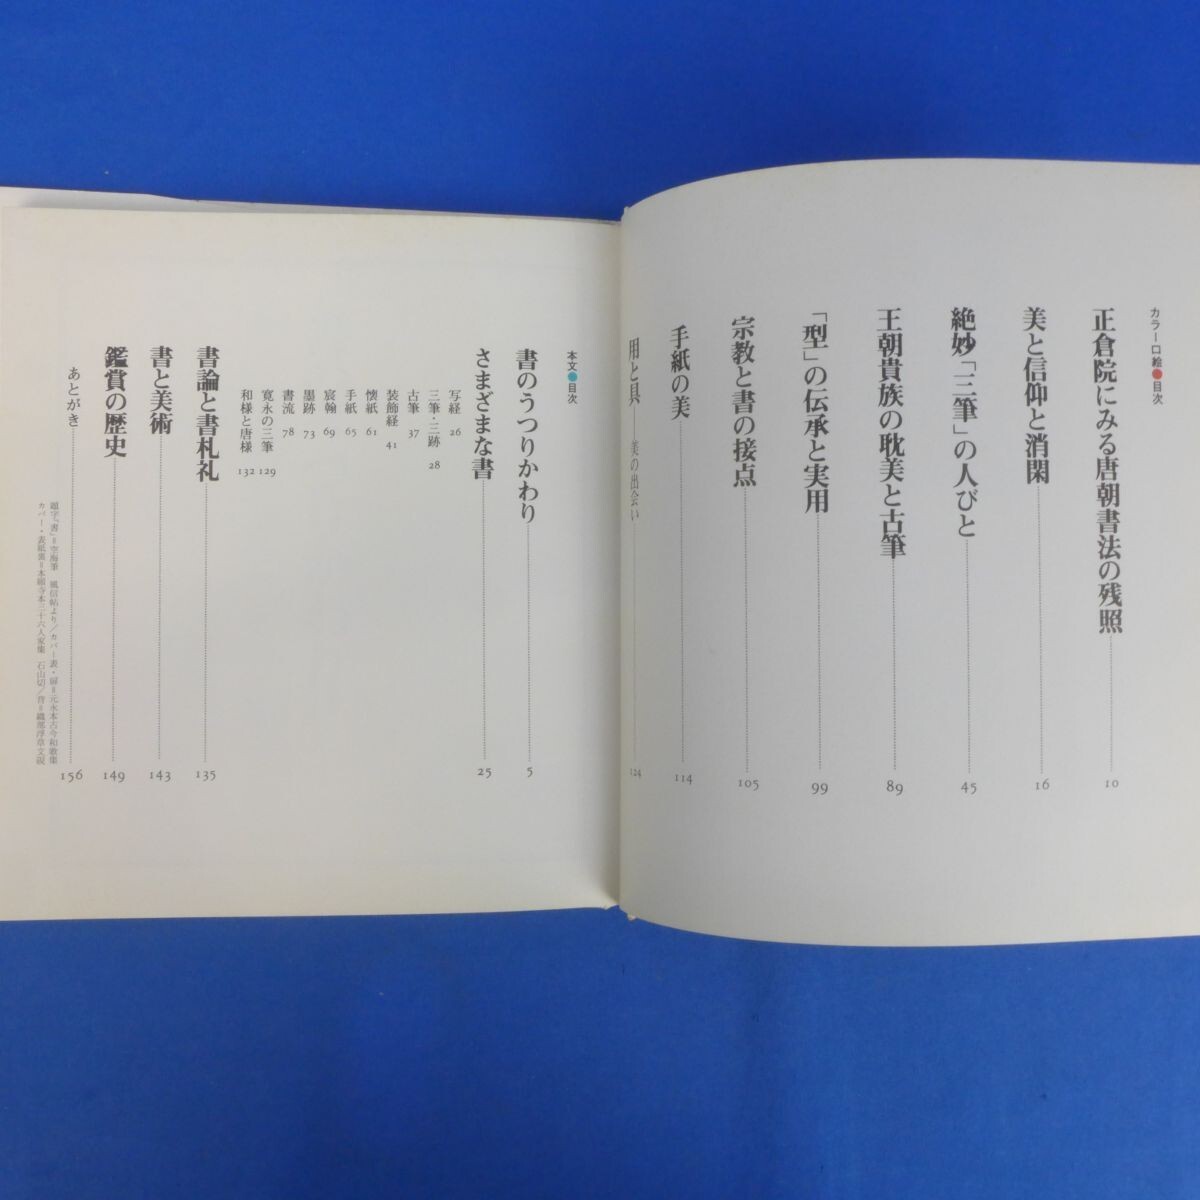 カラー口絵●目次
正倉院にみる唐朝書法の残照 10
美と信仰と消閑 16
絶妙「三筆」の人びと 45
王朝貴族の耽美と古筆 89
「型」の伝承と実用 99
宗教と書の接点 105
手紙の美 114
用と具 美の出会い 124
本文●目次
書のうつりかわり 5
さまざまな書 25
写経 26
三筆・三跡 28
古筆 37
装飾経 41
懐紙 61
手紙 65
宸翰 69
墨跡 73
書流 78
寛永の三筆 129
和様と唐様 132
書論と書札礼 135
書と美術 143
鑑賞の歴史 149
あとがき 156
題字「書」=空海筆 風信帖より/カバー表・扉=元永本古今和歌集
カバー・表紙裏=本願寺本三十六人家集 石山切/背=織部浮草文硯